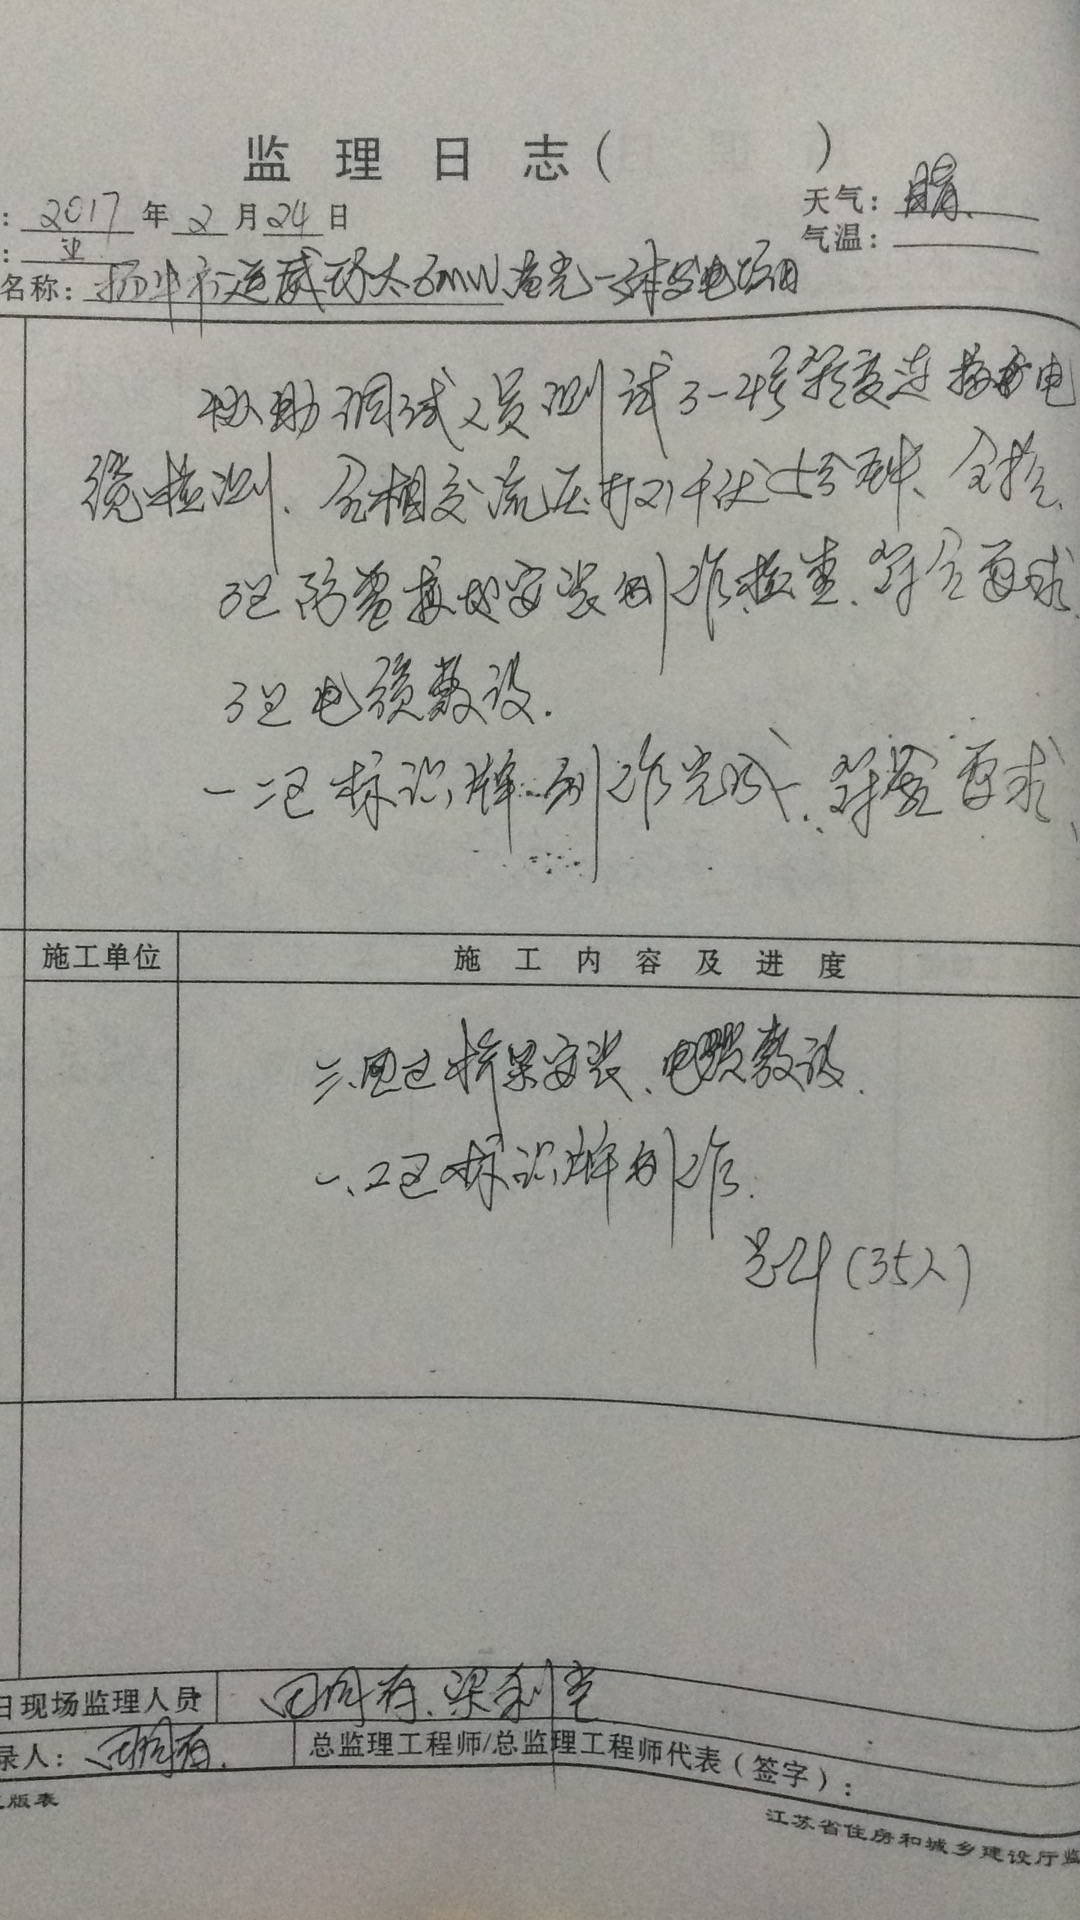 监理日志（ ）
：2017年2月24日 天气：晴
： 气温：
名称：扬中市运威 5MW渔光一体发电项目
协助调试人员测试3-4号 连接 电
缆检测、 相交流压打21千伏 5分钟、合格.
3区防雷接地安装制作检查.符合要求
3区电缆敷设.
一二区标识牌制作完成、符合要求、
施工单位 施工内容及进度
三、四区桥架安装、电缆敷设.
一、二区标识牌制作.
总计(35人)
日现场监理人员
录人： 总监理工程师/总监理工程师代表（签字）：
版表
江苏省住房和城乡建设厅监